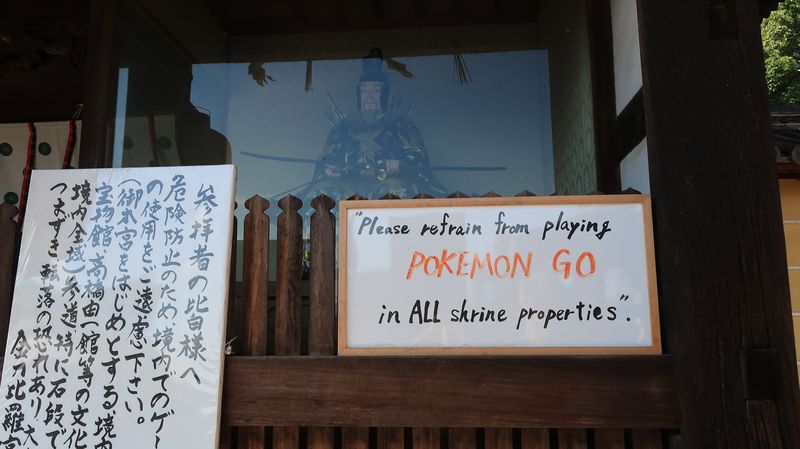 参拝者の皆様へ
危険防止のため境内でのゲー
の使用をご遠慮下さい。
(御本宮をはじめとする、境内
宝物館、高橋由一館等の文化
境内全域)参道、特に石段で
つまずき転落の恐れあり 大
金刀比羅宮
"Please refrain from playing
POKEMON GO
in ALL shrine properties".